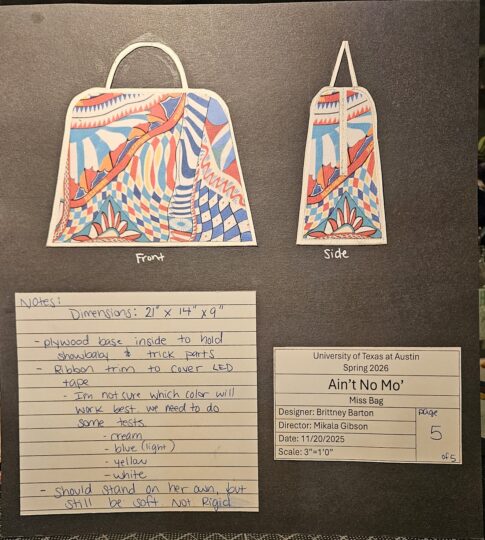 Front
Side
Notes:
Dimensions: 21" x 14" x 9"
- plywood base inside to hold
showbaby & trick parts
- Ribbon trim to cover LED
tape
- Im not sure which color will
work best. we need to do
some tests.
- cream
- blue (light)
- yellow
- white
- should stand on her own, but
still be soft Not Rigid
University of Texas at Austin
Spring 2026
Ain't No Mo'
Miss Bag
Designer: Brittney Barton
Director: Mikala Gibson
Date: 11/20/2025
Scale: 3"=1'0"
page
5
of 5